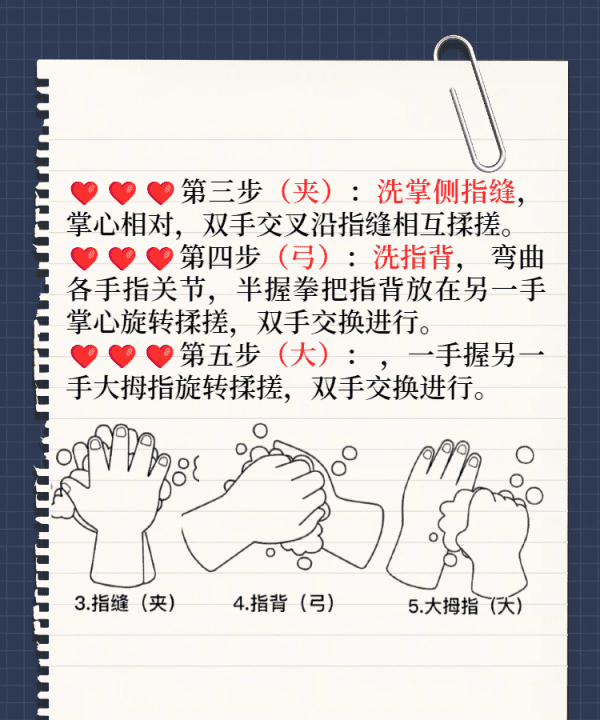 第三步（夹）：洗掌侧指缝，
掌心相对，双手交叉沿指缝相互揉搓。
第四步（弓）：洗指背， 弯曲
各手指关节，半握拳把指背放在另一手
掌心旋转揉搓，双手交换进行。
第五步（大）：，一手握另一
手大拇指旋转揉搓，双手交换进行。
3.指缝（夹）
4.指背（弓）
5.大拇指（大）